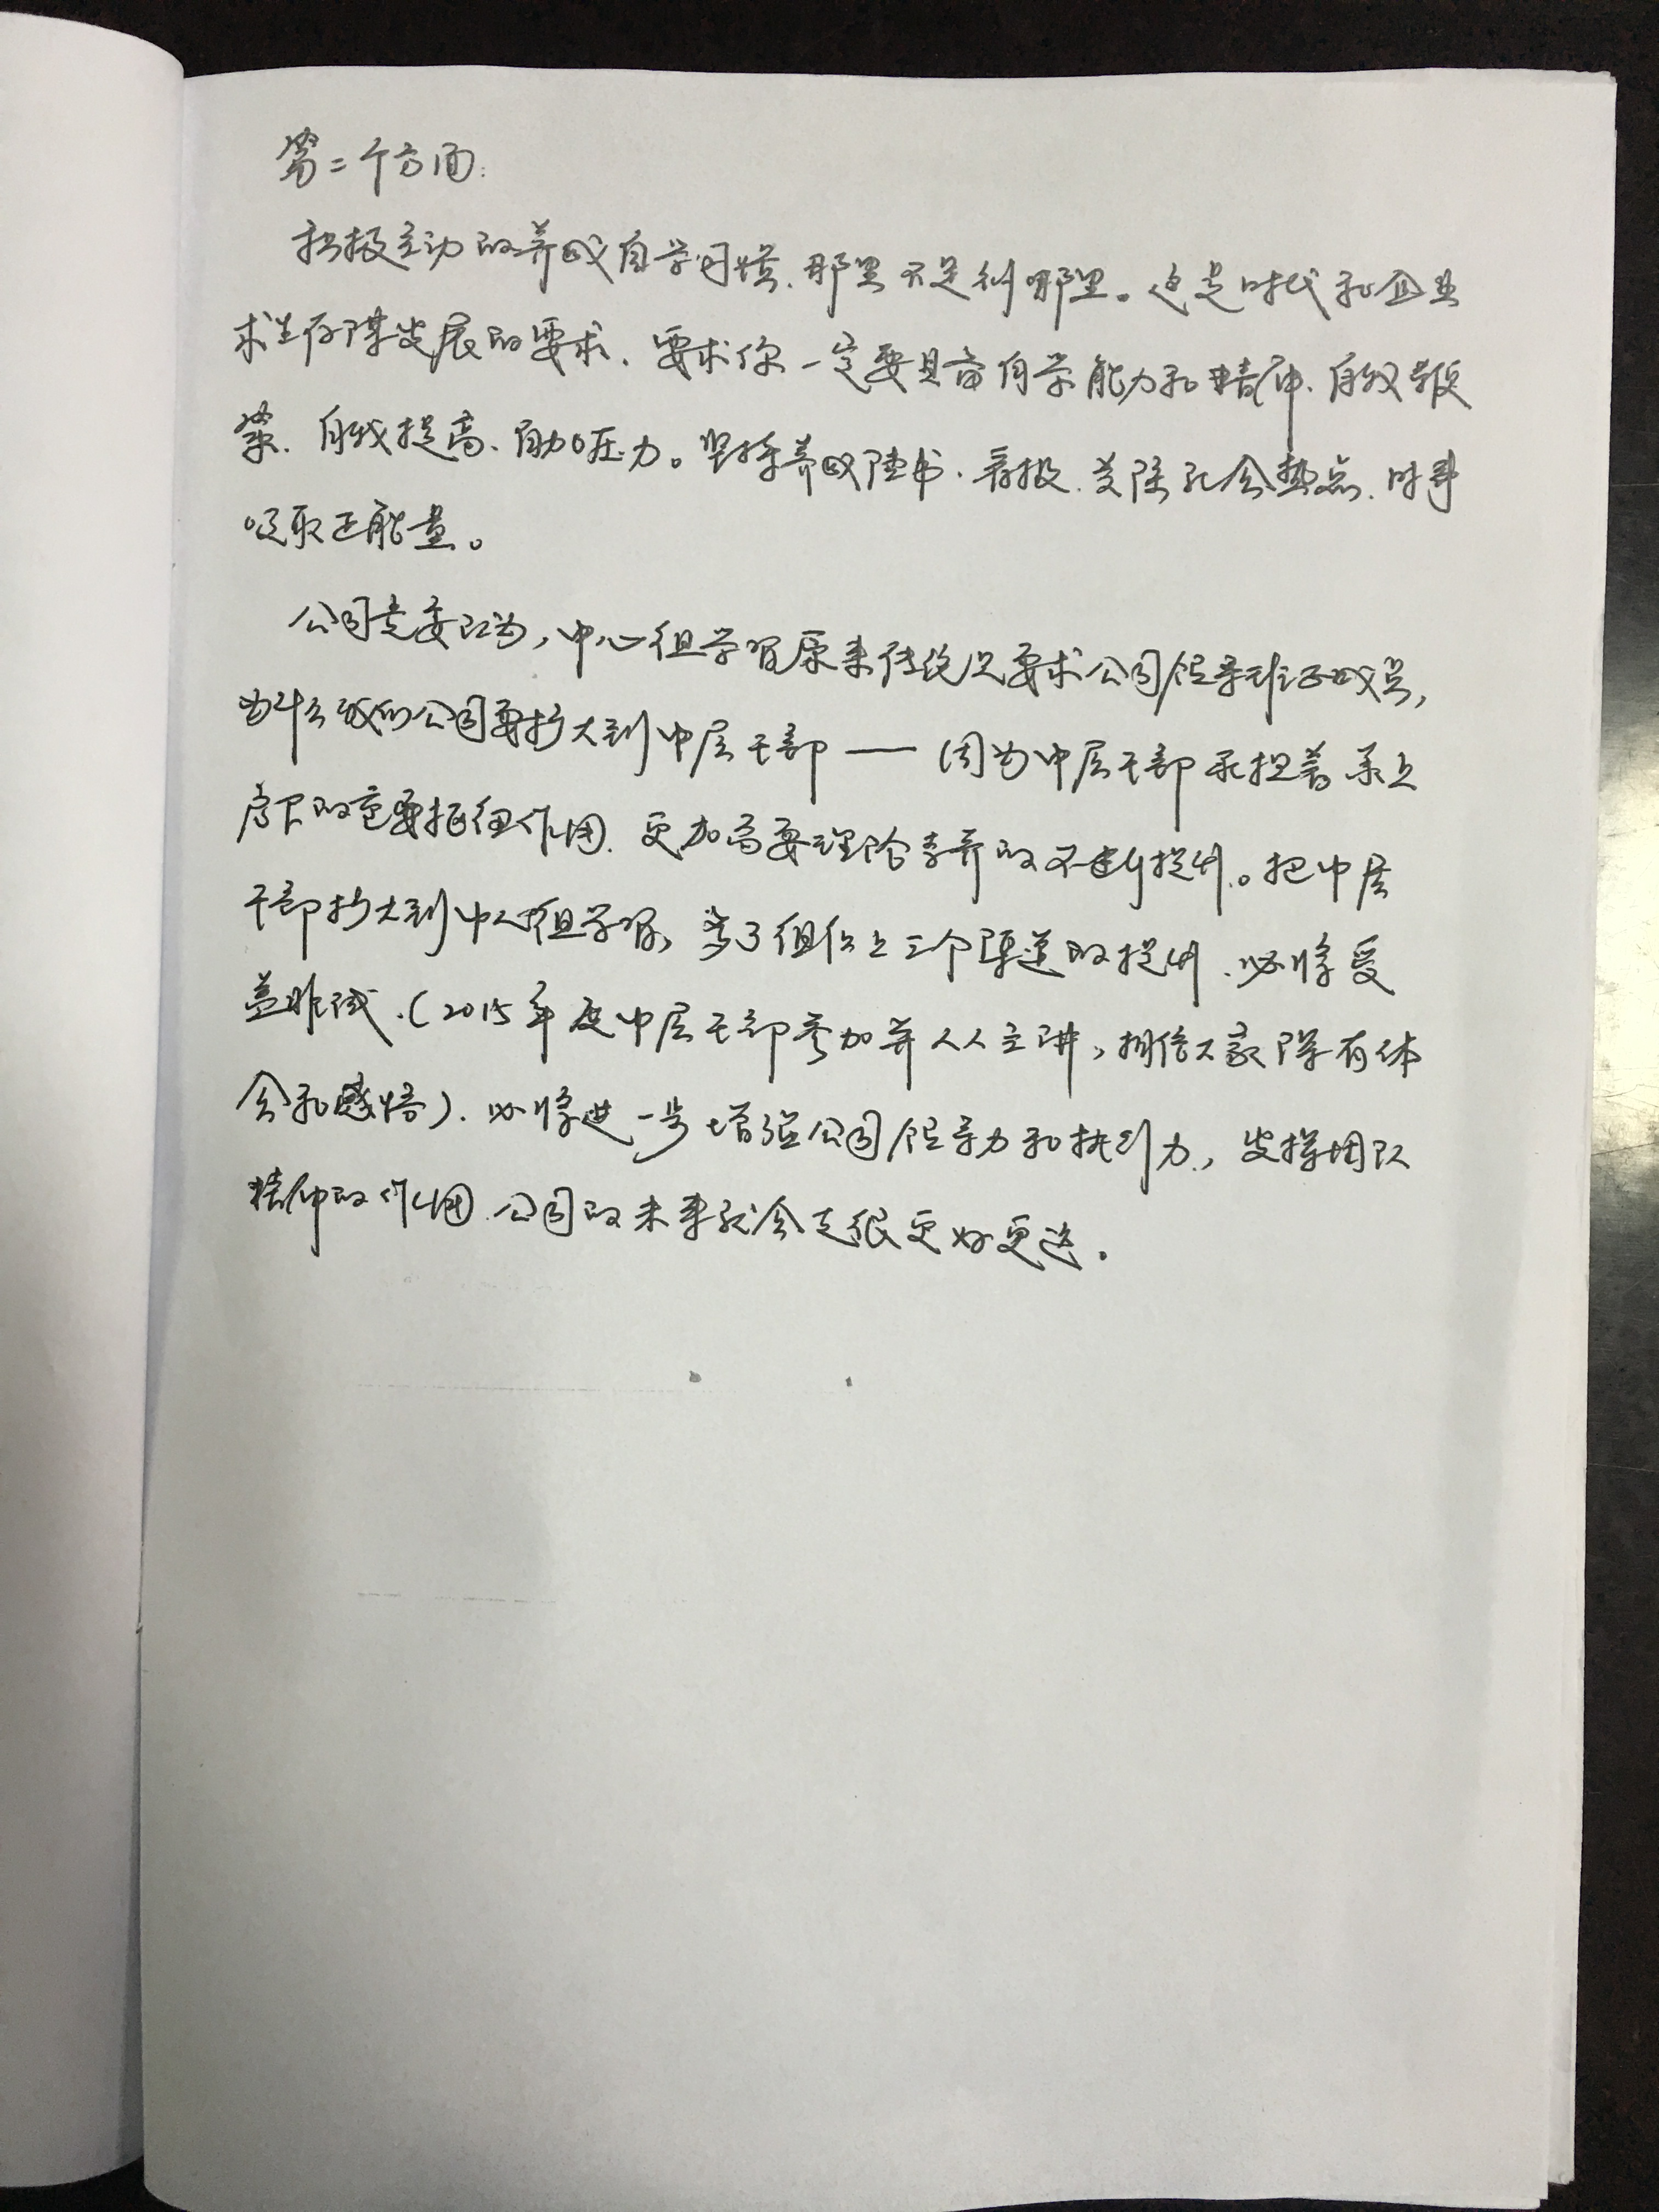 第二个方面:
积极主动的养成自学习惯、那里不足补那里。这是时代和企业
求生存谋发展的要求、要求你一定要具备自学能力和精神、自我
自我提高、自加压力。坚持养成读书、看报、关注社会热点、时事
吸取正能量。
公司党委认为,中心组学习原来传统只要求公司领导班子成员,
为什么我们公司要扩大到中层干部——因为中层干部承担着承上
启下的重要枢纽作用、更加需要理论素养的不断提升。把中层
干部扩大到中心组学习,多了组织上三个渠道的提升、必将受
益匪浅、(2015年度中层干部参加并人人主讲,相信大家深有体
会和感悟)、必将进一步增强公司领导力和执行力,发挥团队
精神的作用、公司的未来就会走得更好更远。